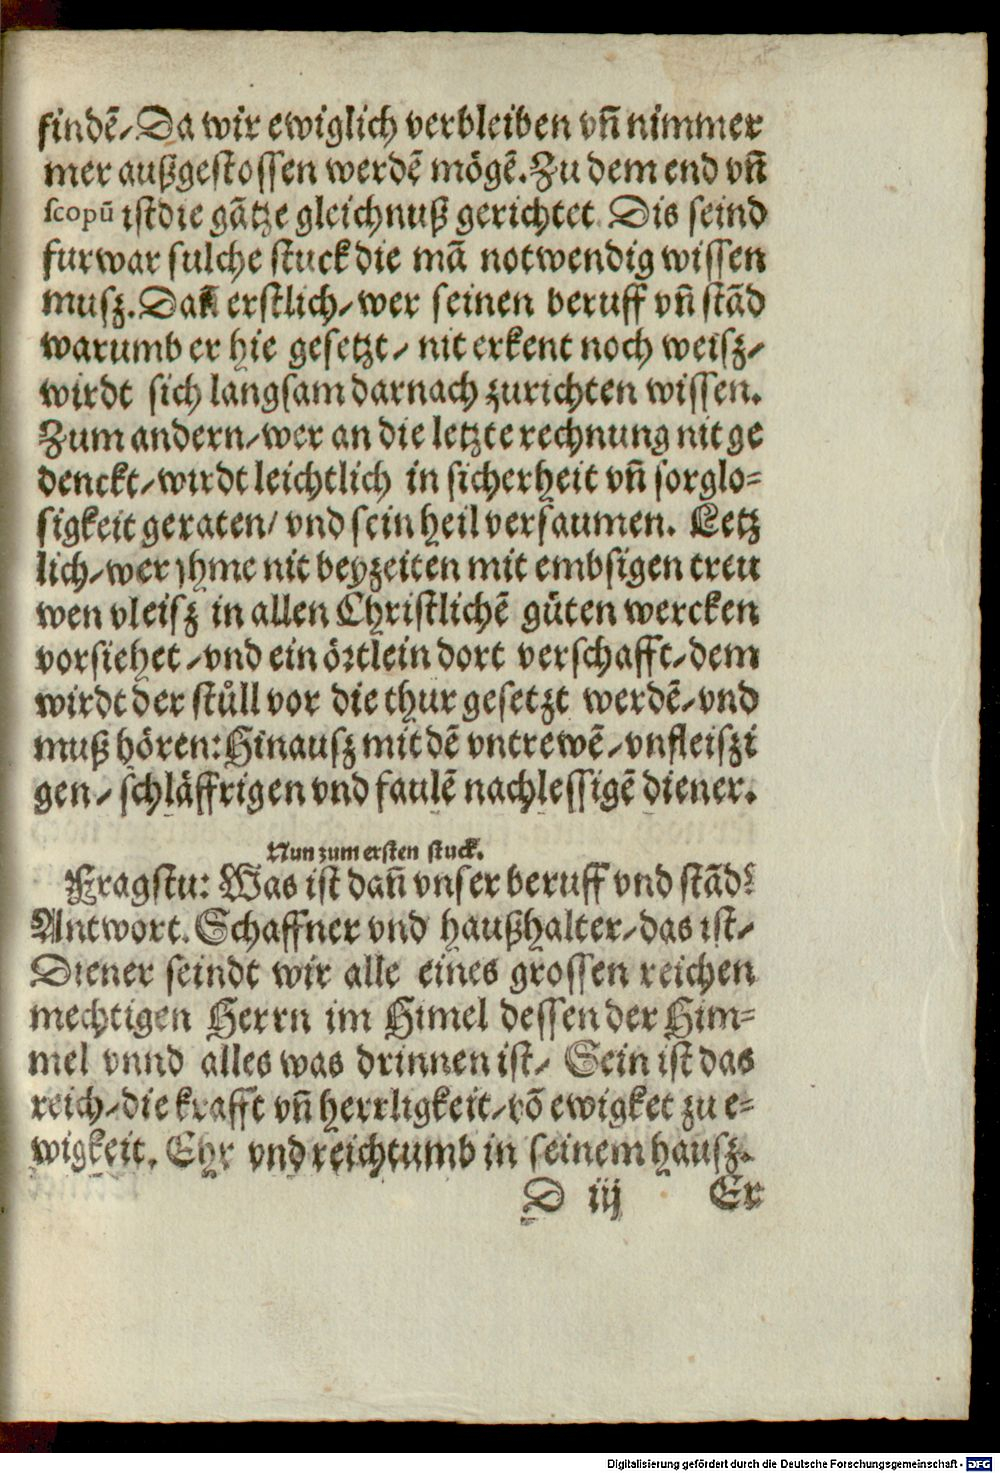 findē/ Da wir ewiglich verbleiben vñ nimmer
mer außgestossen werdē mögē. Zu dem end vñ
scopū ist die gātze gleichnuß gerichtet. Dis seind
furwar sulche stuck die mā notwendig wissen
musz. Dañ erstlich/ wer seinen beruff vñ stād
warumb er hie gesetzt/ nit erkent noch weisz/
wirdt sich langsam darnach zurichten wissen.
Zum andern/ wer an die letzte rechnung nit ge
denckt/ wirdt leichtlich in sicherheit vñ sorglo=
sigkeit geraten/ vnd sein heil versaumen. Letz
lich/ wer yhme nit beyzeiten mit embsigen treu
wen vleisz in allen Christlichē gůten wercken
vorsiehet/ vnd ein örtlein dort verschafft/ dem
wirdt der stůll vor die thur gesetzt werdē/ vnd
muß hören: Hinausz mit dē vntrewē/ vnfleiszi
gen/ schläffrigen vnd faulē nachlessigē diener.
Nun zum ersten stuck.
Fragstu: Was ist dañ vnser beruff vnd stād?
Antwort. Schaffner vnd haußhalter/ das ist/
Diener seindt wir alle eines grossen reichen
mechtigen Herrn im Himel dessen der Him=
mel vnnd alles was drinnen ist/ Sein ist das
reich/ die krafft vñ herrligkeit/ vō ewigket zu e=
wigkeit. Ehr vnd reichtumb in seinem hausz.
D iij Er
Digitalisierung gefördert durch die Deutsche Forschungsgemeinschaft - DFG